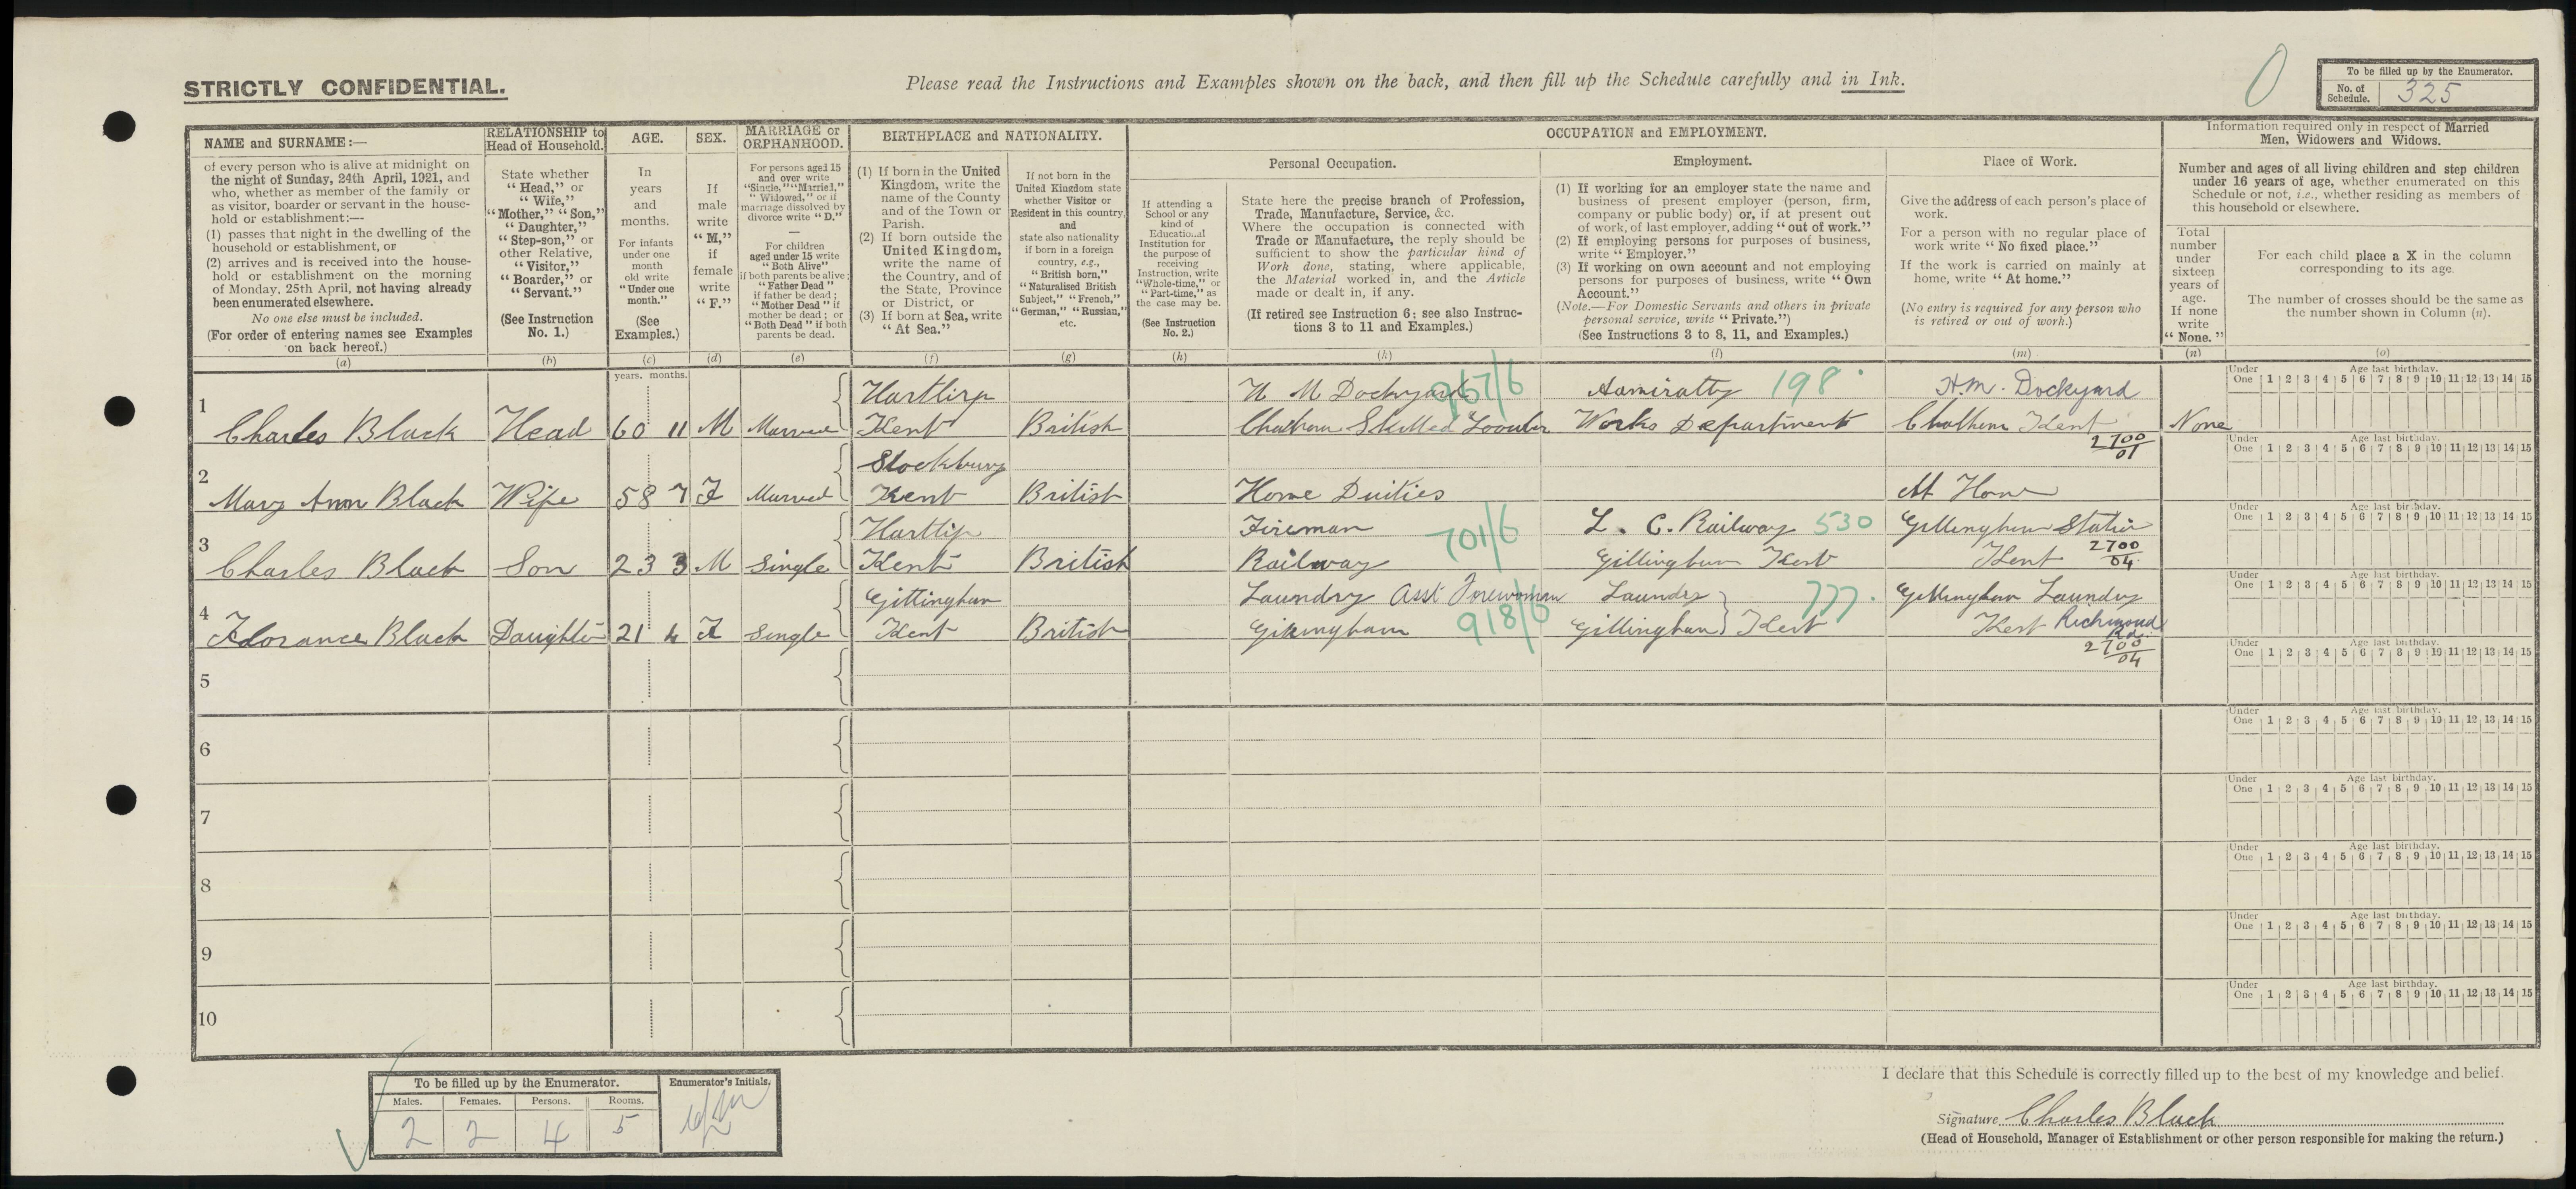 STRICTLY CONFIDENTIAL.
Please read the Instructions and Examples shown on the back, and then fill up the Schedule carefully and in Ink.
To be filled up by the Enumerator.
No. of Schedule. 325
NAME and SURNAME:—
of every person who is alive at midnight on
the night of Sunday, 24th April, 1921, and
who, whether as member of the family or
as visitor, boarder or servant in the house-
hold or establishment:—
(1) passes that night in the dwelling of the
household or establishment, or
(2) arrives and is received into the house-
hold or establishment on the morning
of Monday, 25th April, not having already
been enumerated elsewhere.
No one else must be included.
(For order of entering names see Examples
on back hereof.)
(a)
RELATIONSHIP to
Head of Household.
State whether
"Head," or
"Wife,"
"Mother," "Son,"
"Daughter,"
"Step-son," or
other Relative,
"Visitor,"
"Boarder," or
"Servant."
(See Instruction
No. 1.)
(b)
AGE.
In
years
and
months.
For infants
under one
month
old write
"Under one
month."
(See
Examples.)
(c)
SEX.
If
male
write
"M,"
if
female
write
"F."
(d)
MARRIAGE or
ORPHANHOOD.
For persons aged 15
and over write
"Single," "Married,"
"Widowed," or if
marriage dissolved by
divorce write "D."
For children
aged under 15 write
"Both Alive"
if both parents be alive;
"Father Dead"
if father be dead;
"Mother Dead" if
mother be dead; or
"Both Dead" if both
parents be dead.
(e)
BIRTHPLACE and NATIONALITY.
(1) If born in the United
Kingdom, write the
name of the County
and of the Town or
Parish.
(2) If born outside the
United Kingdom,
write the name of
the Country, and of
the State, Province
or District, or
(3) If born at Sea, write
"At Sea."
(f)
If not born in the
United Kingdom state
whether Visitor or
Resident in this country,
and
state also nationality
if born in a foreign
country, e.g.,
"British born,"
"Naturalised British
Subject," "French,"
"German," "Russian,"
etc.
(g)
OCCUPATION and EMPLOYMENT.
If attending a
School or any
kind of
Educational
Institution for
the purpose of
receiving
Instruction, write
"Whole-time," or
"Part-time," as
the case may be.
(See Instruction
No. 2.)
(h)
Personal Occupation.
State here the precise branch of Profession,
Trade, Manufacture, Service, &c.
Where the occupation is connected with
Trade or Manufacture, the reply should be
sufficient to show the particular kind of
Work done, stating, where applicable,
the Material worked in, and the Article
made or dealt in, if any.
(If retired see Instruction 6; see also Instruc-
tions 3 to 11 and Examples.)
(k)
Employment.
(1) If working for an employer state the name and
business of present employer (person, firm,
company or public body) or, if at present out
of work, of last employer, adding "out of work."
(2) If employing persons for purposes of business,
write "Employer."
(3) If working on own account and not employing
persons for purposes of business, write "Own
Account."
(Note.—For Domestic Servants and others in private
personal service, write "Private.")
(See Instructions 3 to 8, 11, and Examples.)
(l)
Place of Work.
Give the address of each person's place of
work.
For a person with no regular place of
work write "No fixed place."
If the work is carried on mainly at
home, write "At home."
(No entry is required for any person who
is retired or out of work.)
(m)
Information required only in respect of Married
Men, Widowers and Widows.
Number and ages of all living children and step children
under 16 years of age, whether enumerated on this
Schedule or not, i.e., whether residing as members of
this household or elsewhere.
Total
number
under
sixteen
years of
age.
If none
write
"None."
(n)
For each child place a X in the column
corresponding to its age.
The number of crosses should be the same as
the number shown in Column (n).
(o)
years. months.
Under One Age last birthday. 1 2 3 4 5 6 7 8 9 10 11 12 13 14 15
Hartlip H M Dockyard 967/6 Admiralty 198 H.M. Dockyard
1 Charles Black Head 60 11 M Married Kent British Chatham Skilled Works Department Chatham Kent None
2700/01
Under One Age last birthday. 1 2 3 4 5 6 7 8 9 10 11 12 13 14 15
Stockbury
2 Mary Ann Black Wife 58 7 F Married Kent British Home Duities At Home
Under One Age last birthday. 1 2 3 4 5 6 7 8 9 10 11 12 13 14 15
Hartlip Fireman 701/6 L. C. Railway 530 Gillingham Station
3 Charles Black Son 23 3 M Single Kent British Railway Gillingham Kent Kent 2700/04
Under One Age last birthday. 1 2 3 4 5 6 7 8 9 10 11 12 13 14 15
Gillingham Laundry Asst Forewoman Laundry 777. Gillingham Laundry
4 Florance Black Daughter 21 4 F Single Kent British Gillingham 918/6 Gillingham } Kent Kent Richmond Rd.
2700/04
Under One Age last birthday. 1 2 3 4 5 6 7 8 9 10 11 12 13 14 15
5
Under One Age last birthday. 1 2 3 4 5 6 7 8 9 10 11 12 13 14 15
6
Under One Age last birthday. 1 2 3 4 5 6 7 8 9 10 11 12 13 14 15
7
Under One Age last birthday. 1 2 3 4 5 6 7 8 9 10 11 12 13 14 15
8
Under One Age last birthday. 1 2 3 4 5 6 7 8 9 10 11 12 13 14 15
9
Under One Age last birthday. 1 2 3 4 5 6 7 8 9 10 11 12 13 14 15
10
To be filled up by the Enumerator.
Males. Females. Persons. Rooms.
2 2 4 5
Enumerator's Initials.
I declare that this Schedule is correctly filled up to the best of my knowledge and belief.
Signature Charles Black
(Head of Household, Manager of Establishment or other person responsible for making the return.)